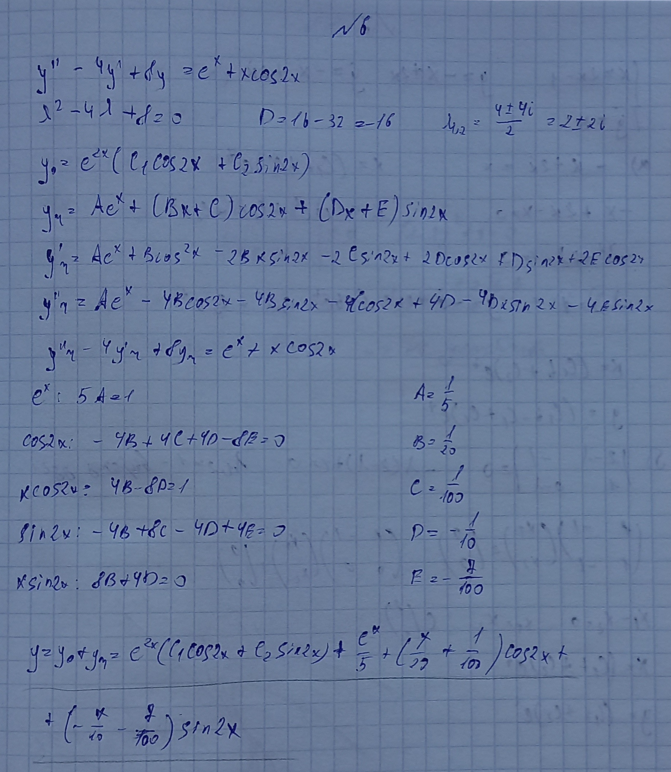 №6
y'' - 4y' + 8y = e^x + xcos2x
λ² - 4λ + 8 = 0 D = 16 - 32 = -16 λ₁,₂ = (4 ± 4i)/2 = 2 ± 2i
y₀ = e^{2x}(C₁cos2x + C₂sin2x)
yч = Ae^x + (Bx + C)cos2x + (Dx + E)sin2x
y'ч = Ae^x + Bcos2x - 2Bxsin2x - 2Csin2x + 2Dcos2x + Dsin2x + 2Ecos2x
y''ч = Ae^x - 4Bcos2x - 4Bsin2x - 4Ccos2x + 4D - 4Dxsin2x - 4Esin2x
y''ч - 4y'ч + 8yч = e^x + xcos2x
e^x: 5A = 1 A = 1/5
cos2x: - 4B + 4C + 4D - 8E = 0 B = 1/20
xcos2x: 4B - 8D = 1 C = 1/100
sin2x: - 4B + 8C - 4D + 4E = 0 D = - 1/10
xsin2x: 8B + 4D = 0 E = - /100
y = y₀ + yч = e^{2x}(C₁cos2x + C₂sin2x) + e^x/5 + (x/20 + 1/100)cos2x +
+ (- x/10 - /100)sin2x